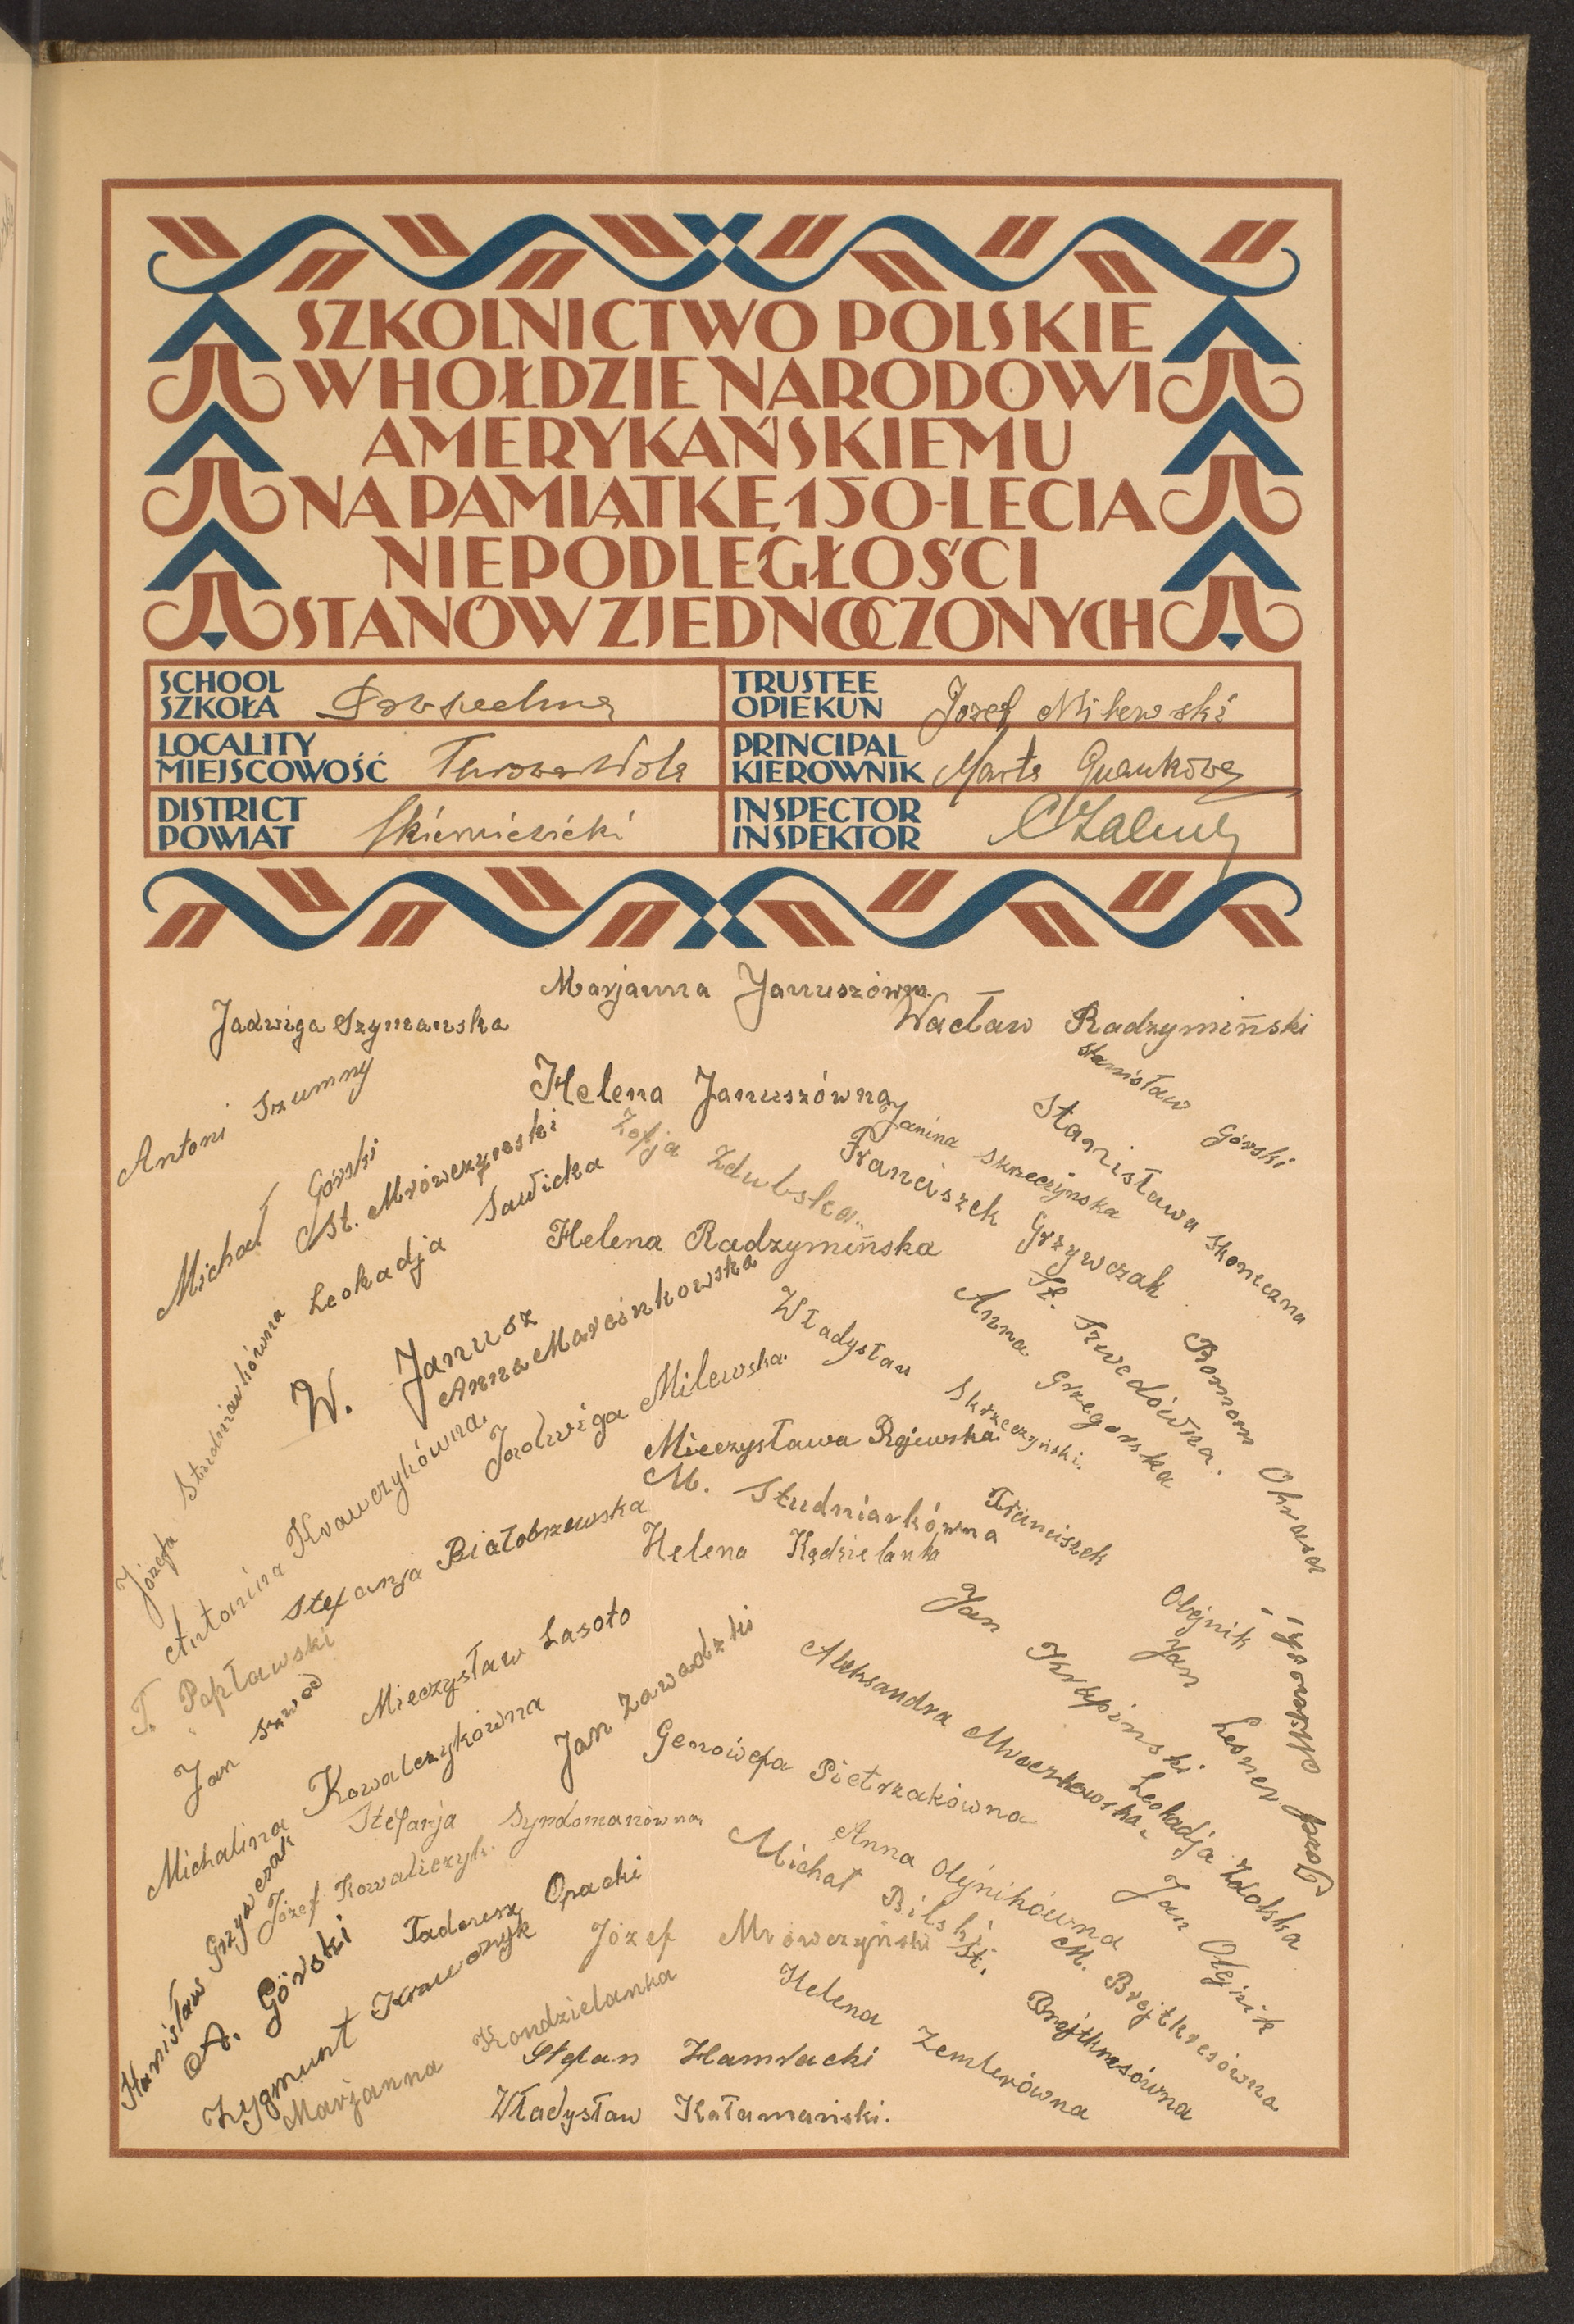 SZKOLNICTWO POLSKIE
W HOŁDZIE NARODOWI
AMERYKAŃSKIEMU
NA PAMIĄTKĘ 150-LECIA
NIEPODLEGŁOŚCI
STANÓW ZJEDNOCZONYCH
SCHOOL
SZKOŁA
TRUSTEE
OPIEKUN Józef Milewski
LOCALITY
MIEJSCOWOŚĆ Turowa Wola
PRINCIPAL
KIEROWNIK Marta
DISTRICT
POWIAT Skierniewicki
INSPECTOR
INSPEKTOR
Marjanna Januszówna
Jadwiga Szymańska
Wacław Radzymiński
Antoni Szumny
Helena Januszówna
Stanisław Górski
Michał Górski
St. Mrówczyński
Zofja Zdubska
Janina Skrzeczyńska
Stanisława Skoneczna
Leokadja Sawicka
Franciszek Grzywczak
Helena Radzymińska
Józefa Studniarkówna
W. Janusz
Anna Marcinkowska
St. Szwedówna.
Anna Grzegorska
Władysław Skrzeczyński.
Roman Okrasa
Antonina Krawczykówna
Jadwiga Milewska.
Mieczysława Rojewska
M. Studniarkówna
Franciszek Olejnik
Stefanja Białobrzewska
Helena Kędzielanka
T. Popławski
Jan Szwed
Mieczysław Lasoto
Jan Krapinski
Jan Lesner
Józef Milewski
Michalina Kowalczykówna
Jan Zawadzki
Aleksandra Mroczkowska
Genowefa Pietrzakówna
Leokadja Zdolska
Stefanja Syndomanówna
Anna Olejnikówna
Jan Olejnik
Stanisław Grzywczak
Józef Kowalczyk.
Michał Bilski
A. Górski
Tadeusz Opacki
Józef Mrówczyński
M. Brejtkresówna
St. Brejtkresówna
Zygmunt Krawczyk
Marjanna Kondzielanka
Helena Zemlerówna
Stefan Hamracki
Władysław Kałamański.